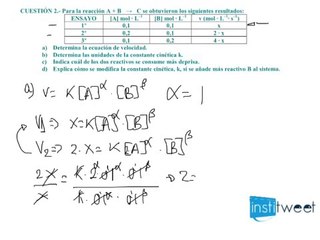 CUESTIÓN 2.- Para la reacción A + B → C se obtuvieron los siguientes resultados:
ENSAYO [A] mol · L⁻¹ [B] mol · L⁻¹ v (mol · L⁻¹·s⁻¹)
1º 0,1 0,1 x
2º 0,2 0,1 2 · x
3º 0,1 0,2 4 · x
a) Determina la ecuación de velocidad.
b) Determina las unidades de la constante cinética k.
c) Indica cuál de los dos reactivos se consume más deprisa.
d) Explica cómo se modifica la constante cinética, k, si se añade más reactivo B al sistema.
a) v = K[A]^α · [B]^β α = 1
V₁ ⇒ x = K[A]^α · [B]^β
V₂ ⇒ 2 · x = K[2A]^α · [B]^β
2x / x = k · 2^α · 0,1^α · 0,1^β / k · 0,1^α · 0,1^β → 2 =
institweet